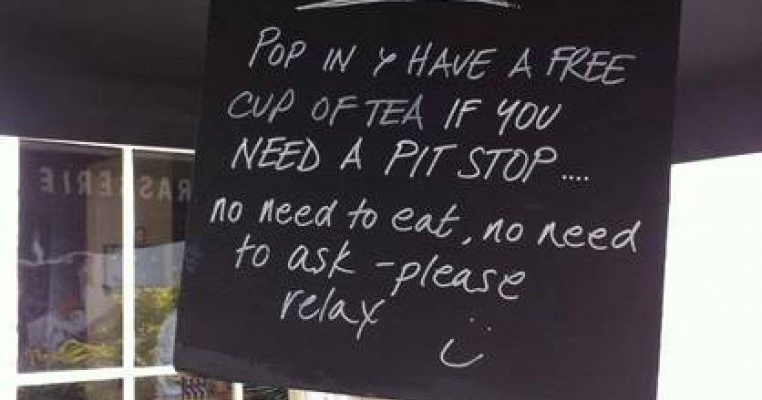 POP IN & HAVE A FREE
CUP OF TEA IF YOU
NEED A PIT STOP....
no need to eat, no need
to ask - please
relax
RASSERIE